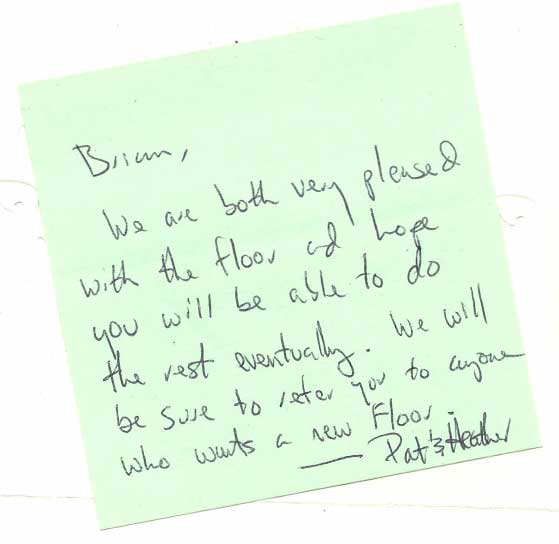 Brian,
We are both very pleased
with the floor and hope
you will be able to do
the rest eventually. We will
be sure to refer you to anyone
who wants a new Floor.
— Pat & Heather